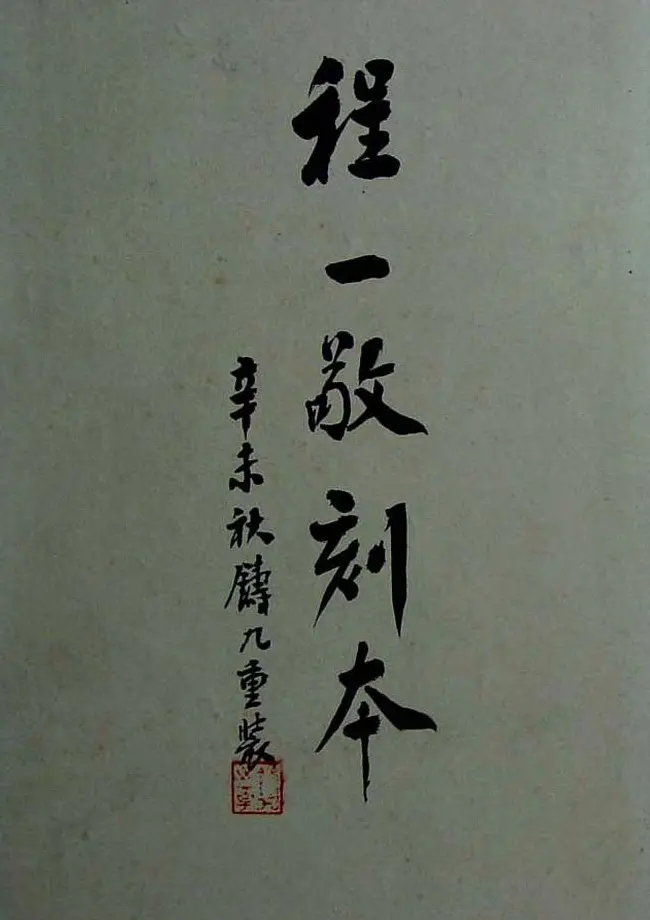 程一敬刻本
辛未秋鑄九重裝